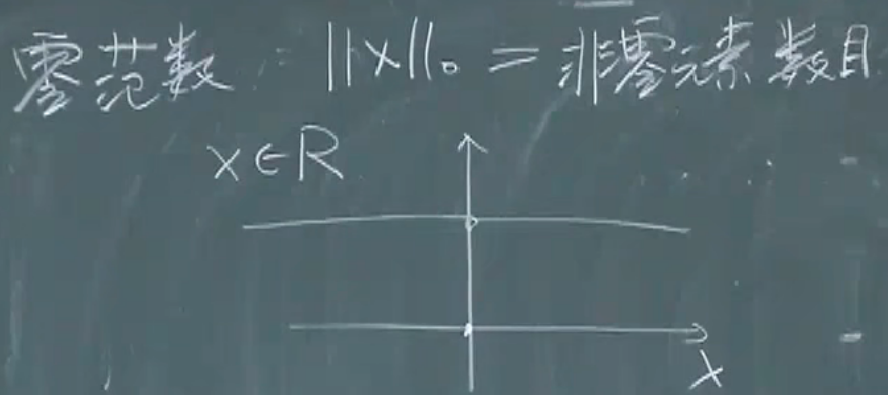 零范数 ||x||₀ = 非零元素数目
x∈R
x